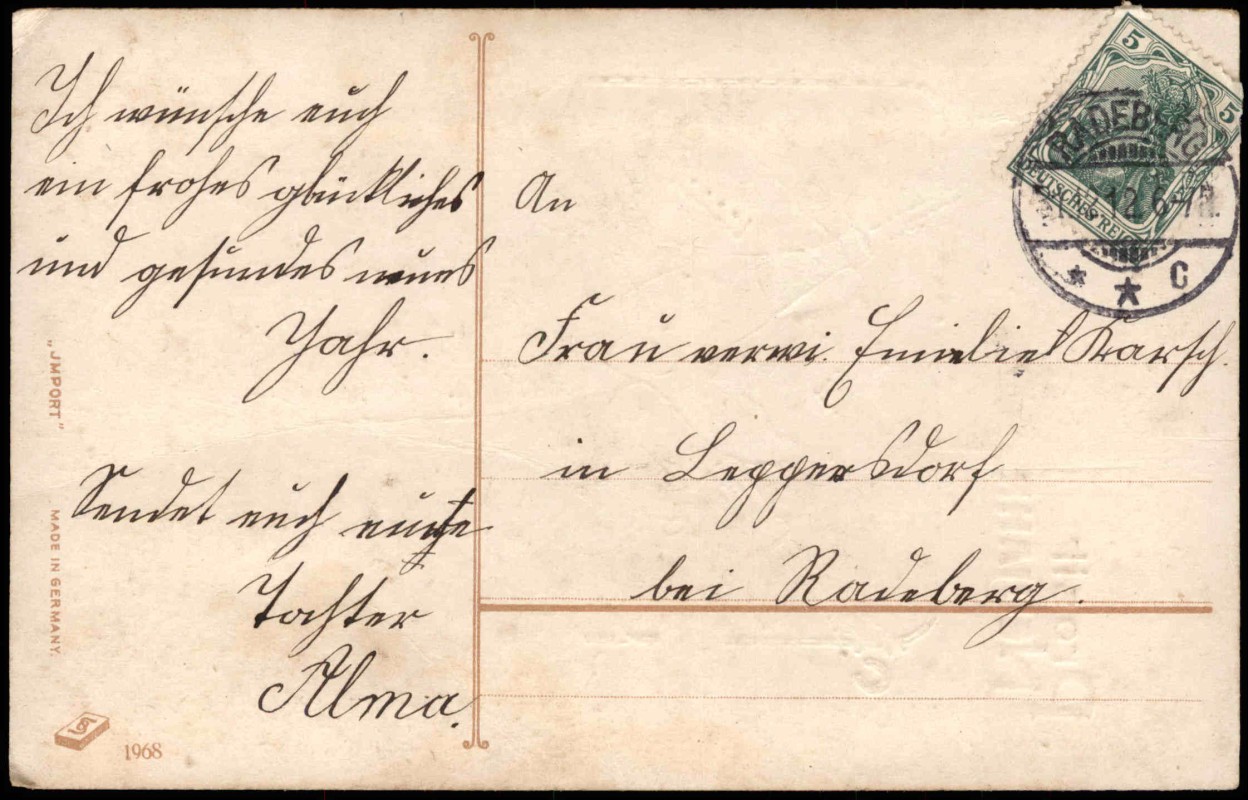 Ich wünsche euch
ein frohes glückliches
und gesundes neues
Jahr.
Sendet euch eure
Tochter
Alma.
"JMPORT"
MADE IN GERMANY.
1968
An
Frau verwi. Emielie Karsch.
in Leppersdorf
bei Radeberg.
5
5
DEUTSCHES REICH
RADEBERG
12 6-7N.
* * C